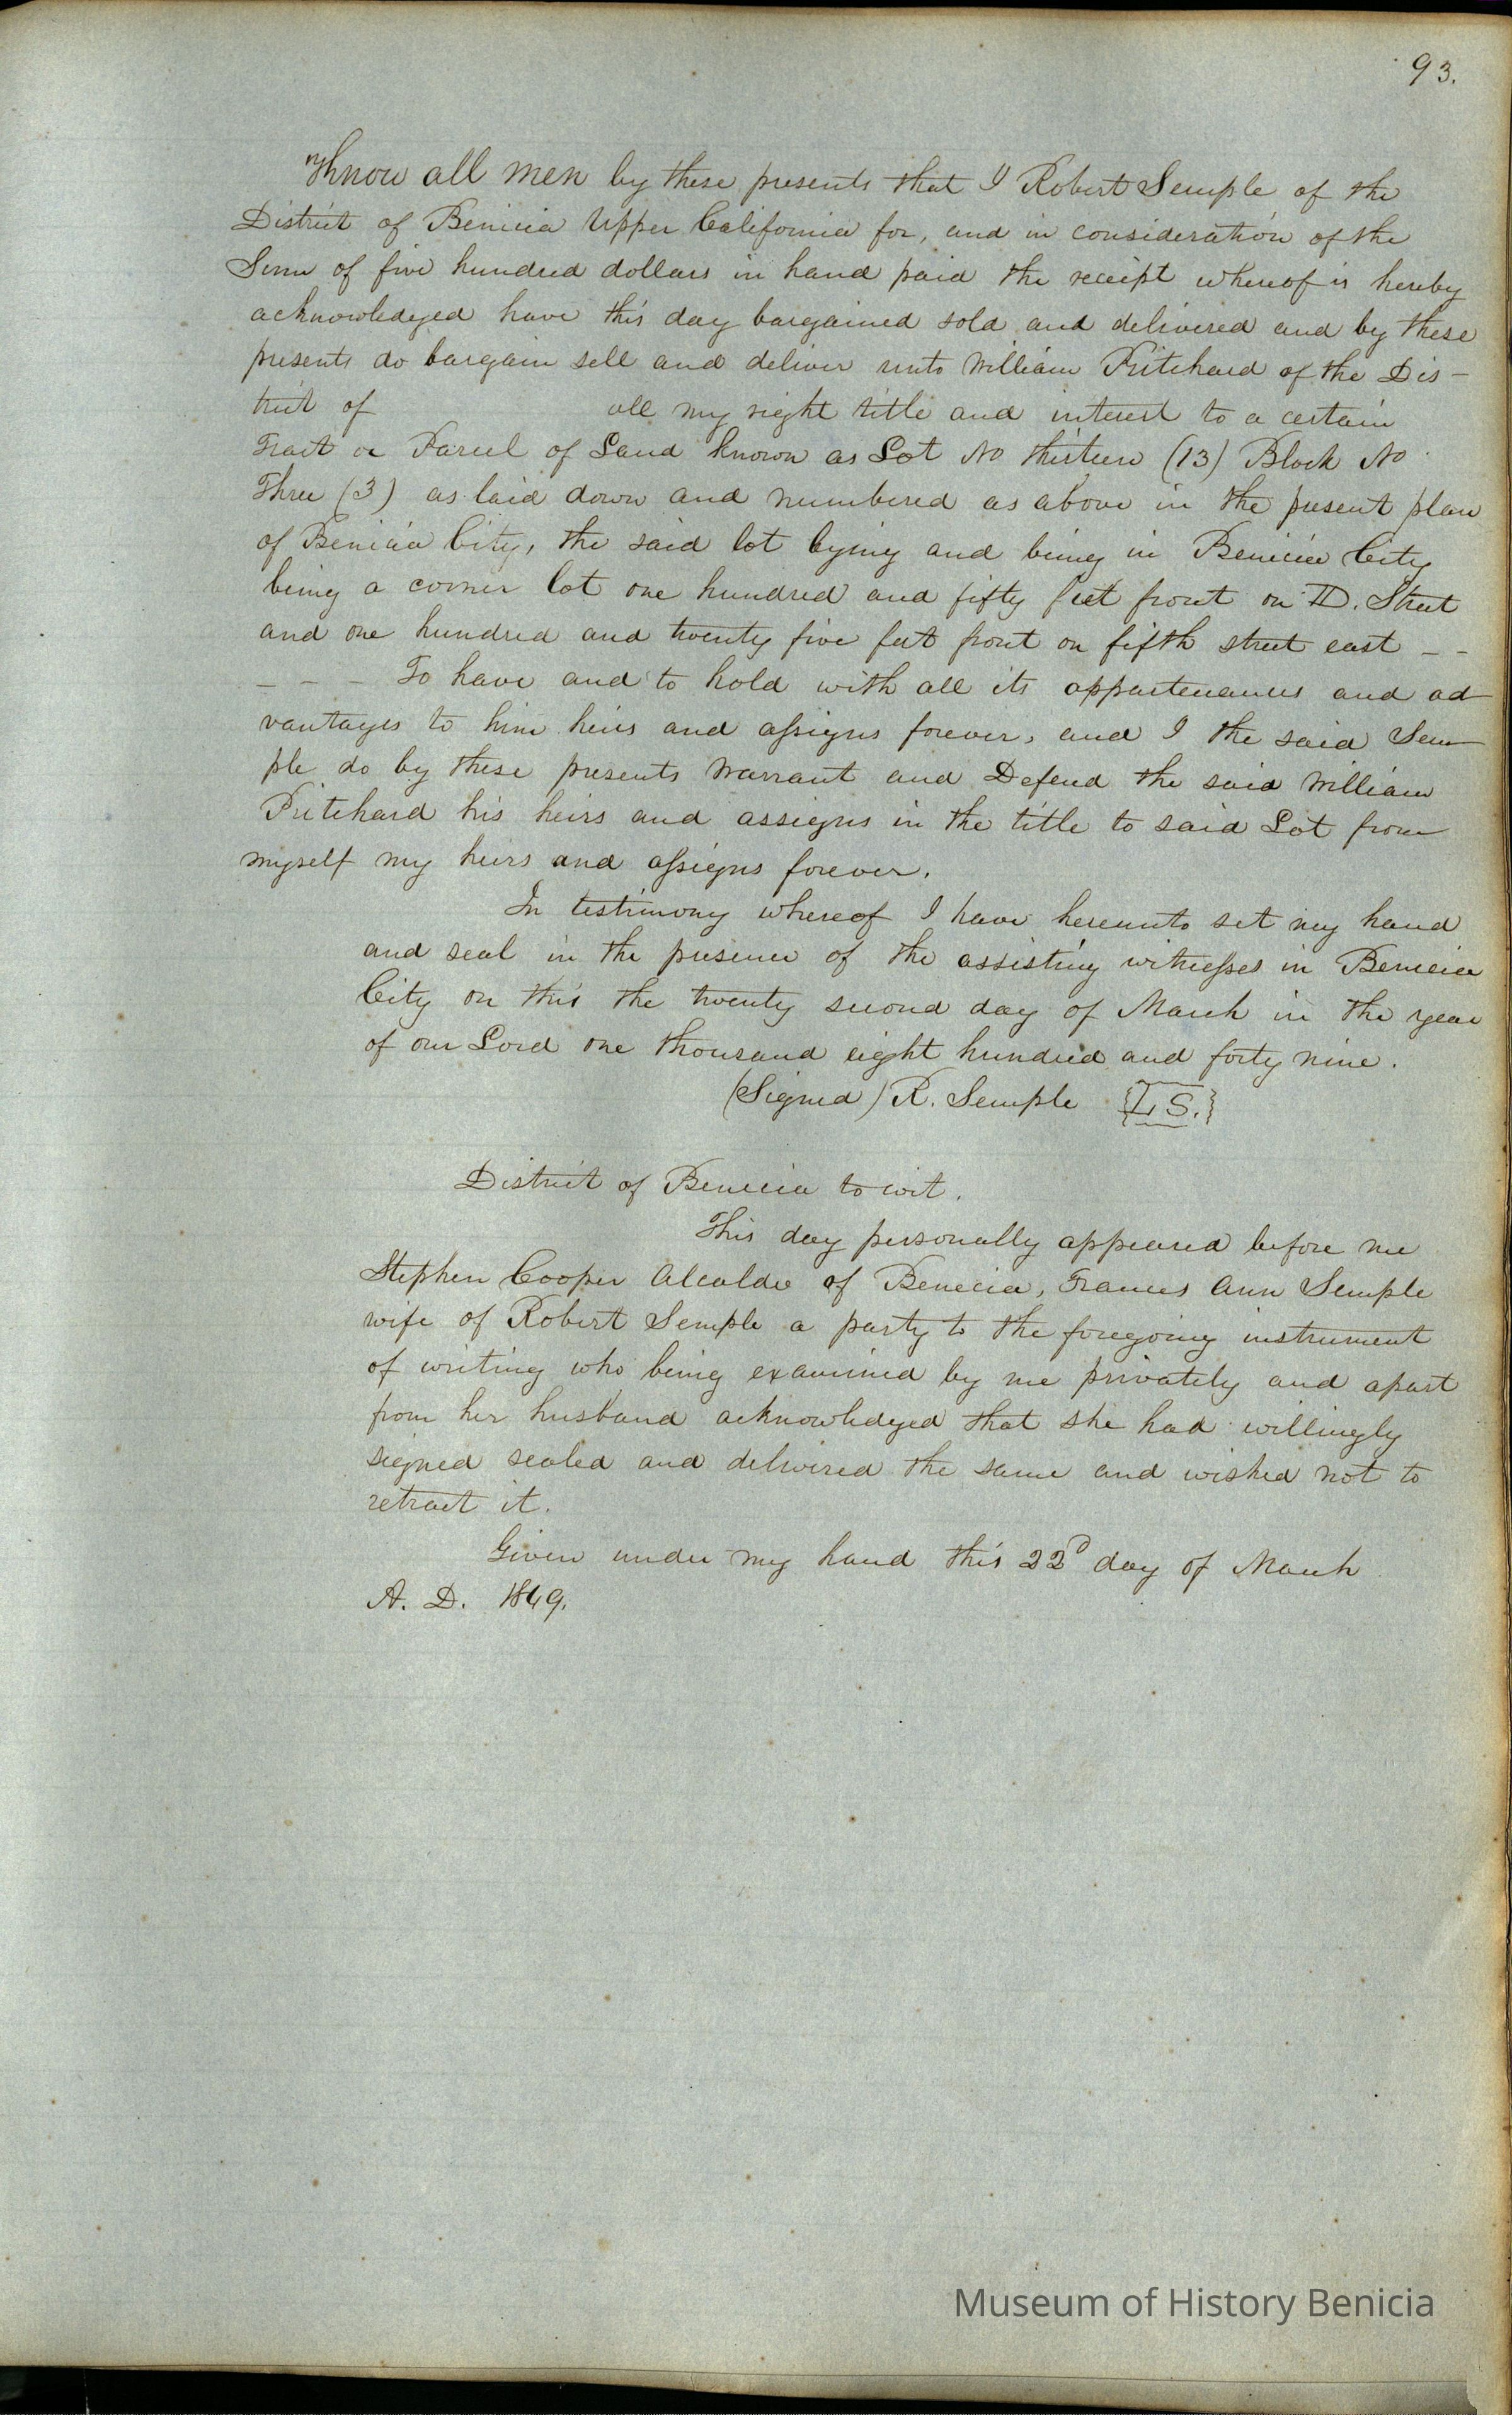 93.
Know all men by these presents that I Robert Semple of the
District of Benicia Upper California for, and in consideration of the
Sum of five hundred dollars in hand paid the receipt whereof is hereby
acknowledged have this day bargained sold and delivered and by these
presents do bargain sell and deliver unto William Pritchard of the Dis-
trict of all my right title and interest to a certain
Tract or Parcel of Land known as Lot No thirteen (13) Block No
Three (3) as laid down and numbered as above in the present plan
of Benicia City, the said lot lying and being in Benicia City
being a corner lot one hundred and fifty feet front on D. Street
and one hundred and twenty five feet front on fifth street east - -
- - - To have and to hold with all its appartenances and ad
vantages to him heirs and assigns forever, and I the said Sem
ple do by these presents warrant and Defend the said William
Pritchard his heirs and assigns in the title to said Lot from
myself my heirs and assigns forever.
In testimony whereof I have hereunto set my hand
and seal in the presence of the assisting witnesses in Benicia
City on this the twenty second day of March in the year
of our Lord one thousand eight hundred and forty nine.
(Signed) R. Semple {L S.}
District of Benicia to wit.
This day personally appeared before me
Stephen Cooper Alcalde of Benecia, Frances Ann Semple
wife of Robert Semple a party to the foregoing instrument
of writing who being examined by me privately and apart
from her husband acknowledged that she had willingly
signed sealed and delivered the same and wished not to
retract it.
Given under my hand this 22d day of March
A. D. 1849.
Museum of History Benicia